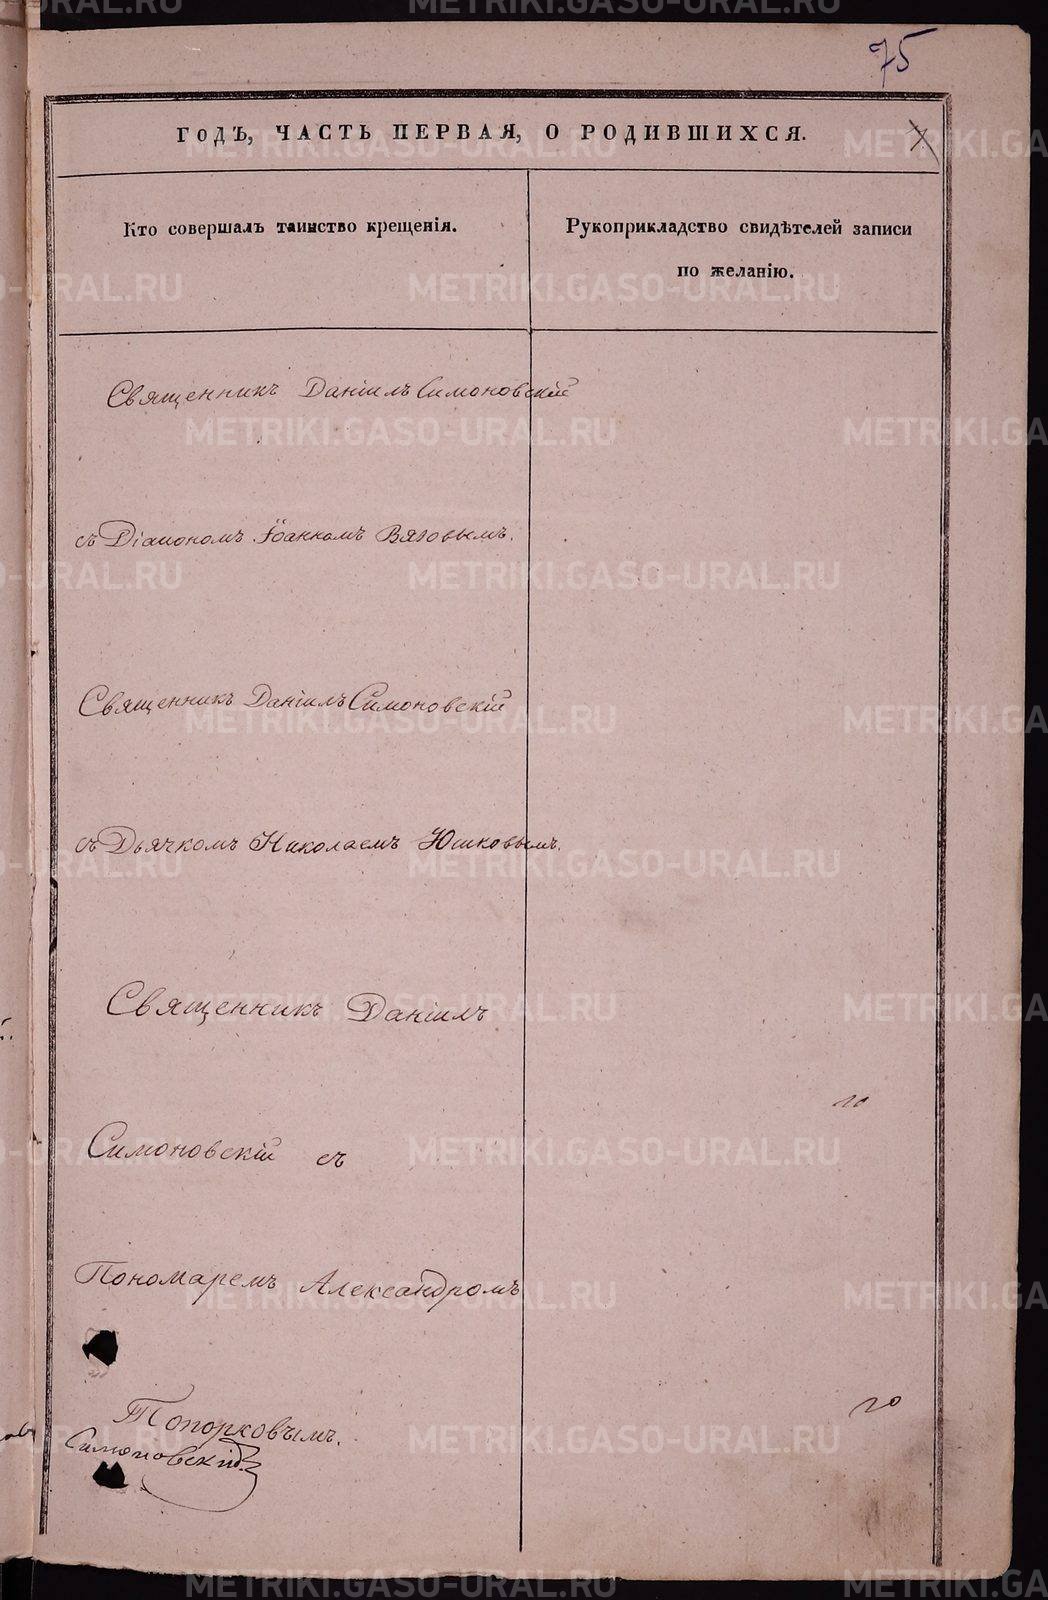 75
ГОДЪ, ЧАСТЬ ПЕРВАЯ, О РОДИВШИХСЯ.
Кто совершалъ таинство крещенія.
Рукоприкладство свидѣтелей записи
по желанію.
Священникъ Даніилъ Симоновскій
съ Діакономъ Іоанномъ Вяговымъ.
Священникъ Даніилъ Симоновскій
съ Дьячкомъ Николаемъ Юшковымъ.
Священникъ Даніилъ
го
Симоновскій съ
Пономаремъ Александромъ
го
Топорковымъ.
Симоновскій
METRIKI.GASO-URAL.RU